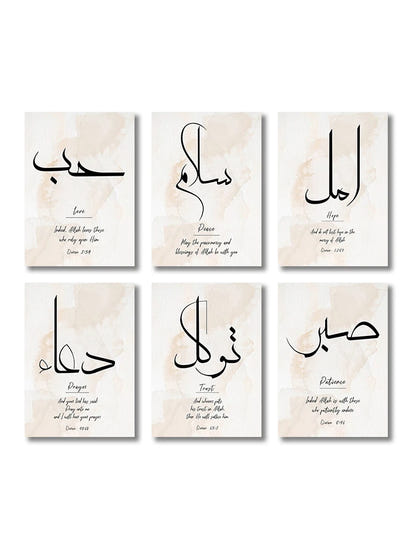 حب
Love
Indeed, Allah loves those
who rely upon Him
Quran 3:159
سلام
Peace
May the peace, mercy and
blessings of Allah be with you
امل
Hope
And do not lose hope in the
mercy of Allah
Quran 12:87
دعاء
Prayer
And your lord has said
Pray unto me
and I will hear your prayer
Quran 40:60
توكل
Trust
And whoever puts
his trust in Allah
then He will suffice him
Quran 65:3
صبر
Patience
Indeed Allah is with those
who patiently endure
Quran 8:46